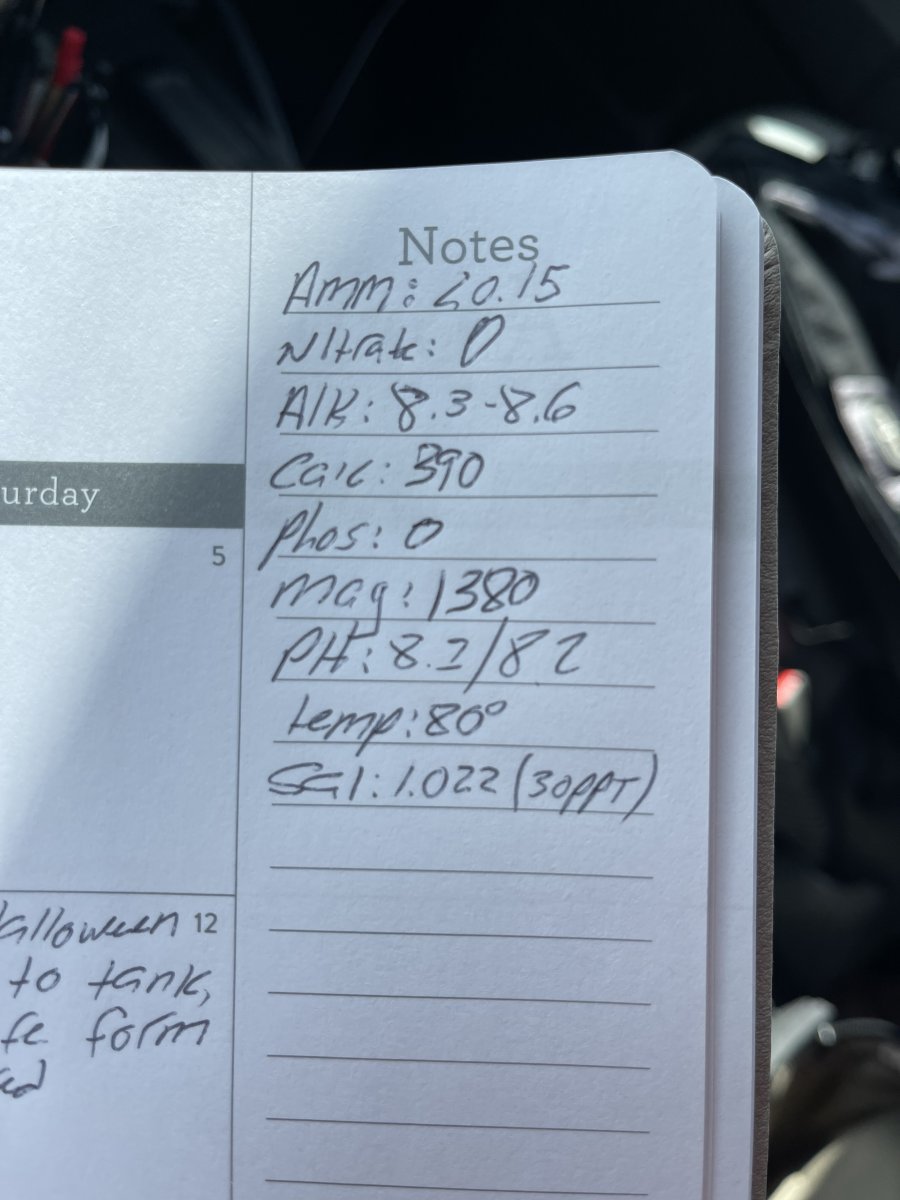 Notes
Amm: <0.15
Nitrate: 0
Alk: 8.3-8.6
Calc: 390
Phos: 0
Mag: 1380
PH: 8.2/8.2
temp: 80°
Sal: 1.022 (30PPT)
urday
5
alloween 12
to tank,
fe form